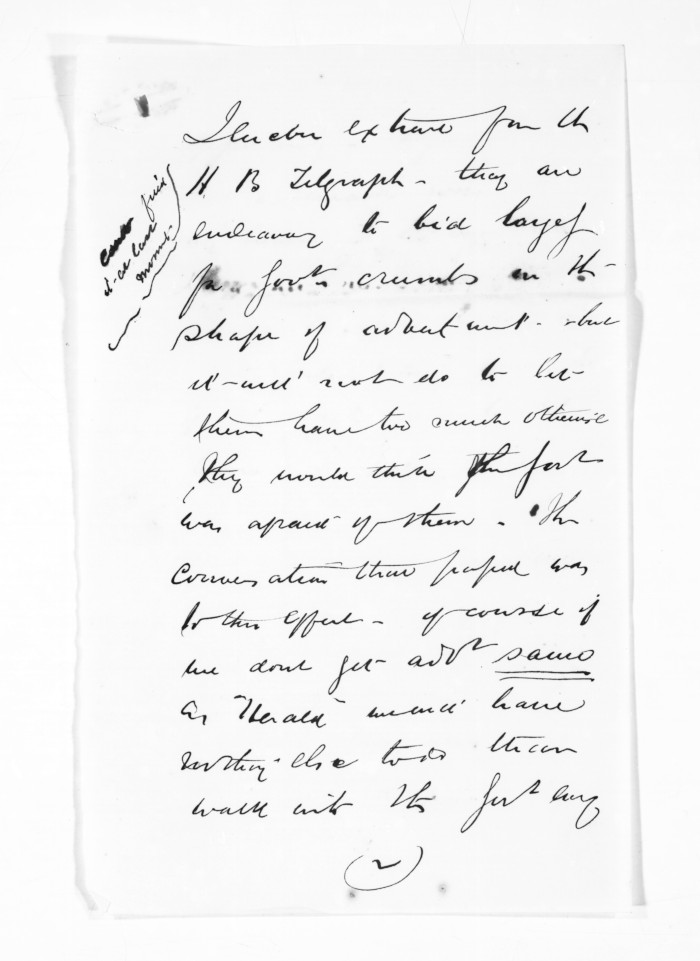 I enclose extract from the
H B Telegraph - they are
endeavorg to bid largely
for Govt crumbs in the
shape of advertmnt - but
it will not do to let
them have too much otherwise
they would think the Govt
was afraid of them - The
conversation that passed was
to this effect - of course if
we dont get advt same
as "Herald" we will have
nothing else to do than
walk into the Govt evy
(2)
find
it at last
moment